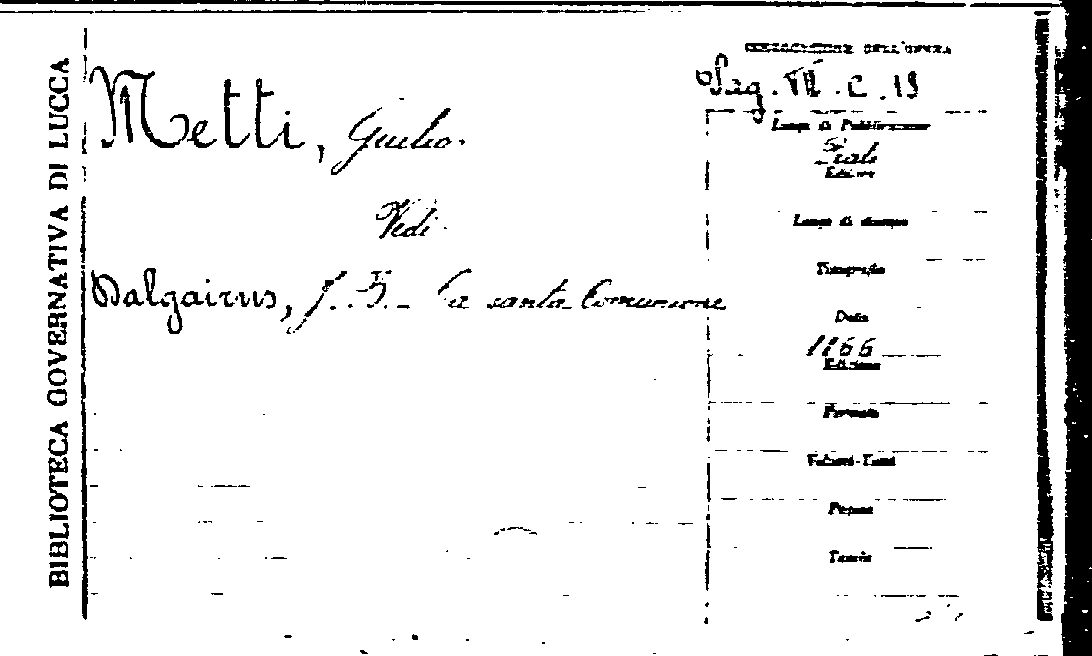 BIBLIOTECA GOVERNATIVA DI LUCCA
Metti, Giulio.
Vedi
Dalgairns, J. B. - La santa Comunione
COLLOCAZIONE DELL'OPERA
Pag. VII. C. 19
Luogo di Pubblicazione
Prato
Editore
Luogo di stampa
Tipografia
Data
1866
Edizione
Formato
Volumi-Tomi
Pagine
Tavole